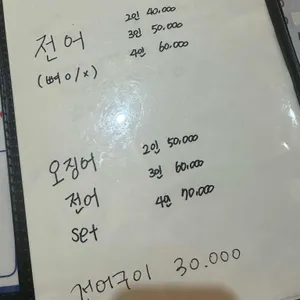 2인 40,000
전어 3인 50,000
(뼈 o/x) 4인 60,000
오징어 2인 50,000
전어 3인 60,000
set 4인 70,000
전어구이 30.000